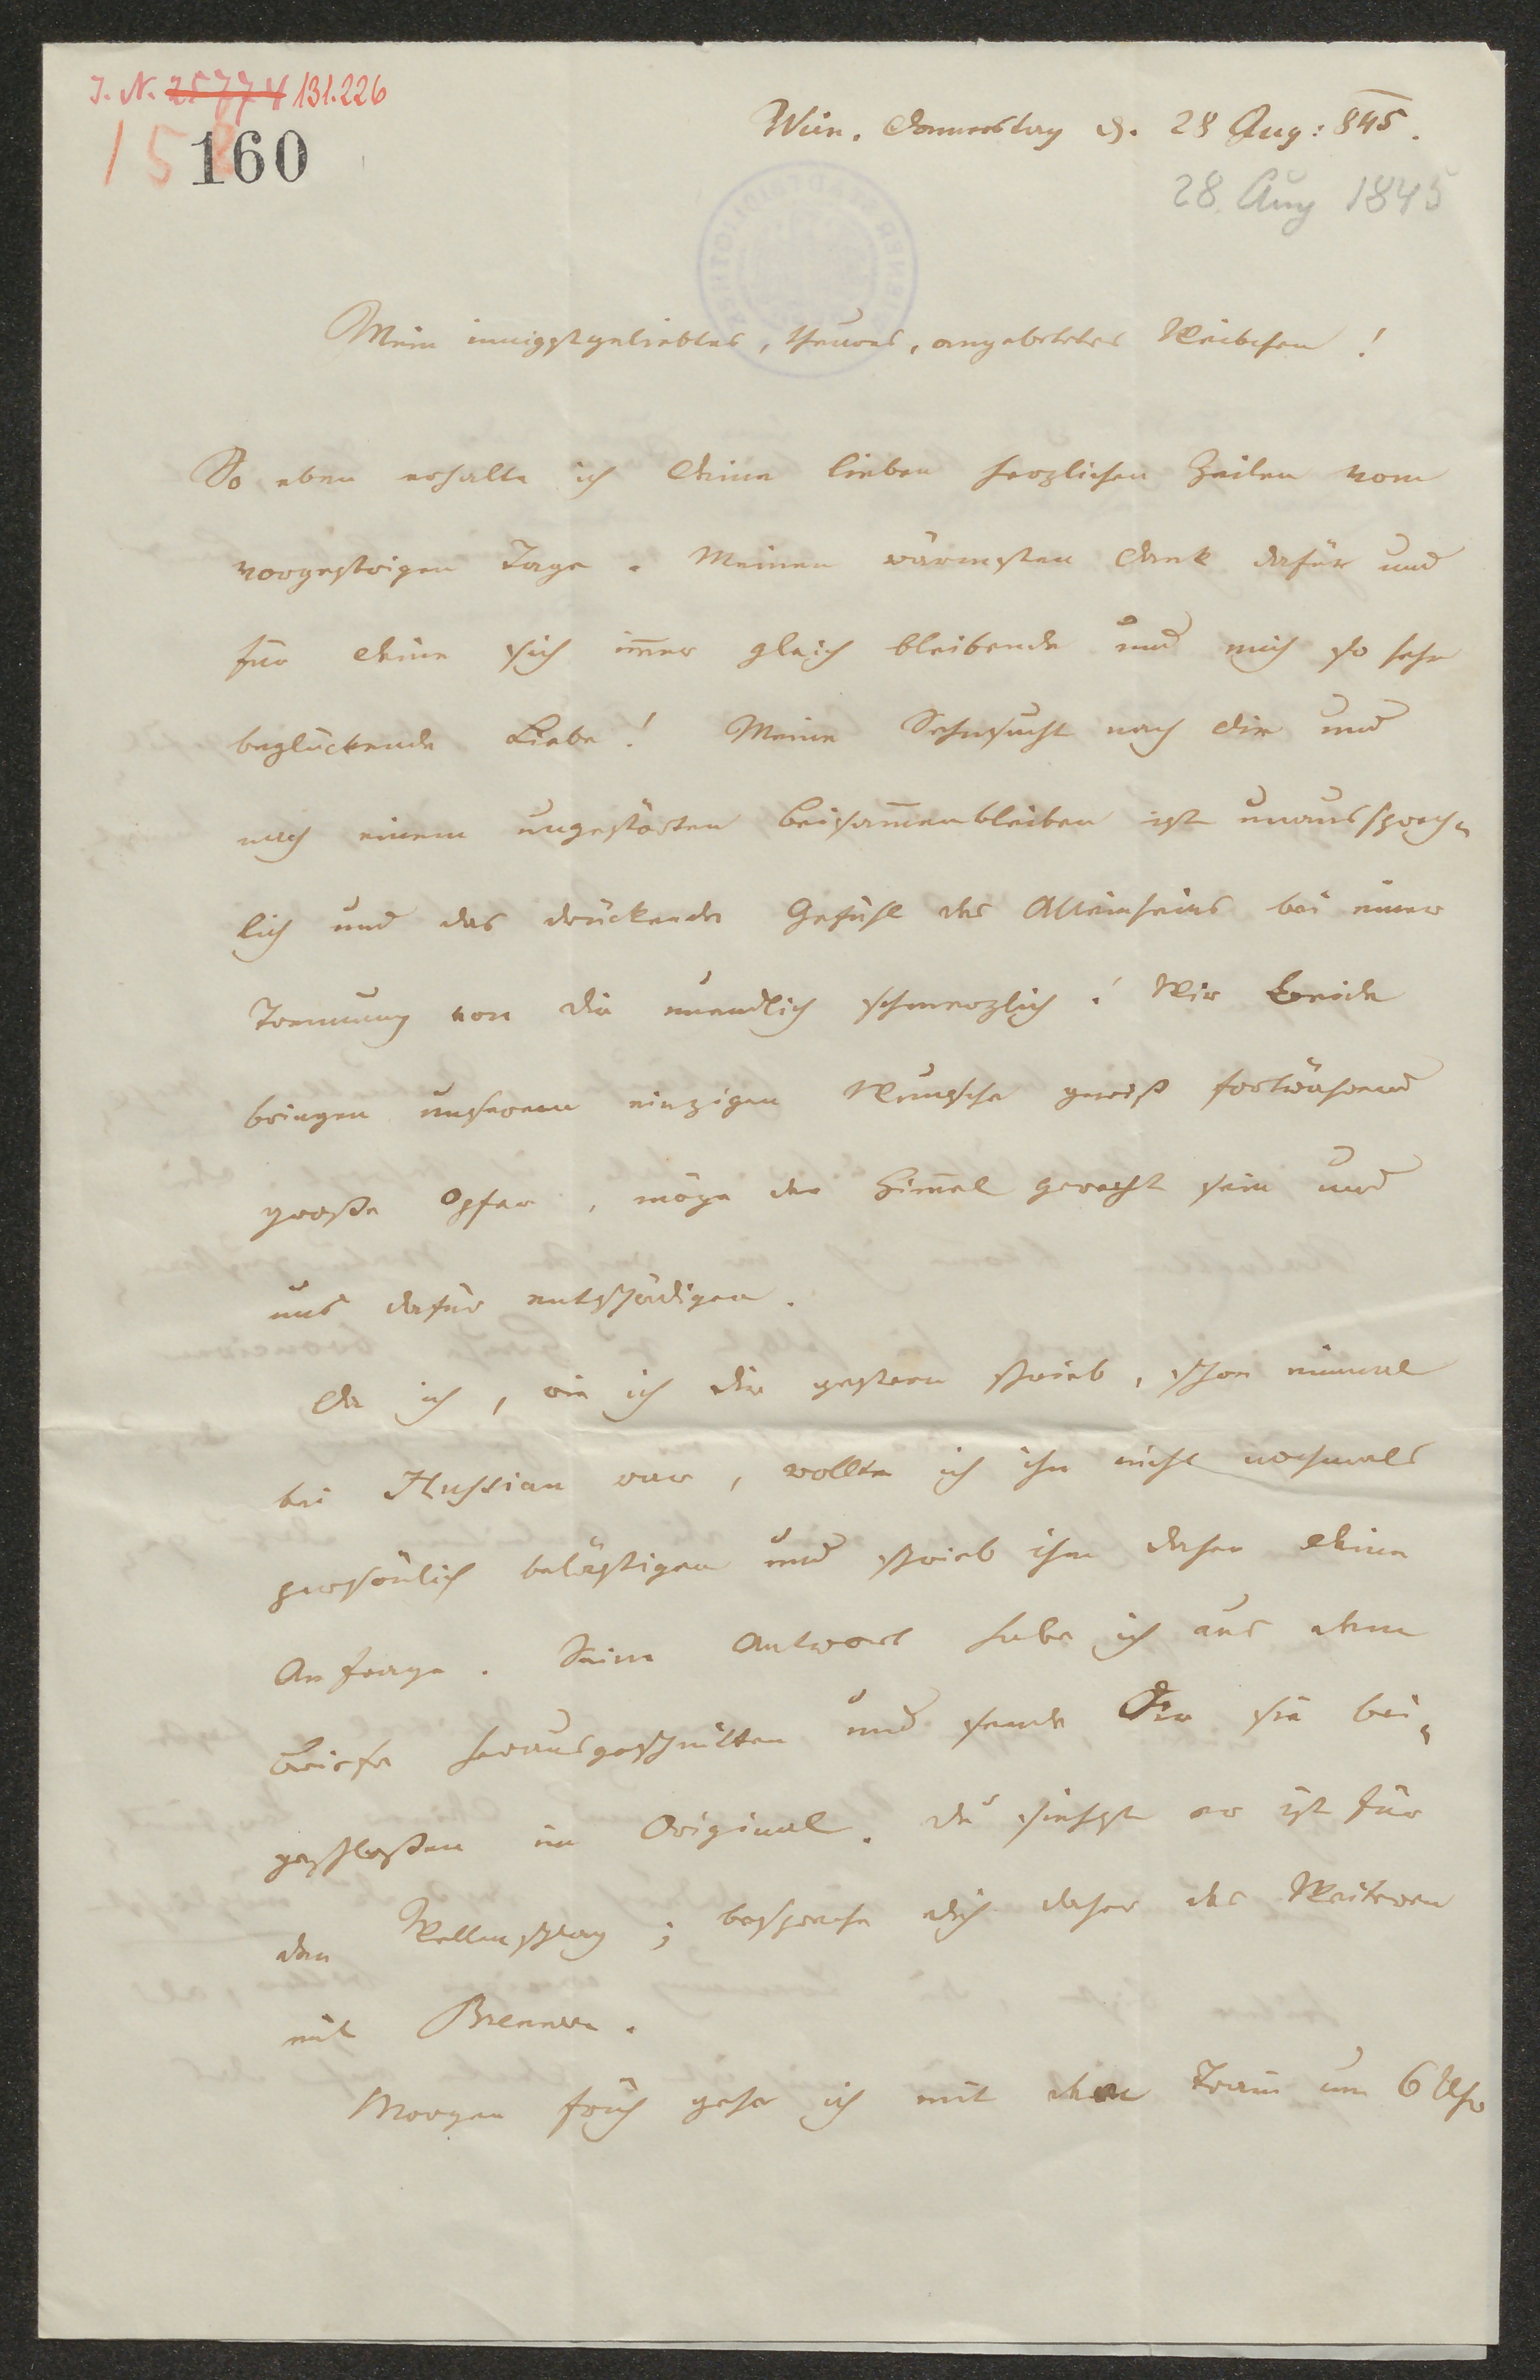 J. N. 25774 131.226
158
160
Wien. Donnerstag d. 28 Aug: 845.
28. Aug 1845
Mein innigstgeliebtes, theures, angebetetes Weibchen!
So eben erhalte ich Deine lieben herzlichen Zeilen vom
vorgestrigen Tage. Meinen wärmsten Dank dafür und
für Deine sich im̅er gleich bleibende und mich so sehr
beglückende Liebe! Meine Sehnsucht nach Dir und
nach einem ungestörten Beisam̅enbleiben ist unaussprech-
lich und das drückende Gefühl des Alleinseins bei einer
Trennung von Dir unendlich schmerzlich! Wir Beide
bringen unserem einzigen Wunsche gewiß fortwährend
große Opfer, möge der Him̅el gerecht sein und
uns dafür entschädigen.
Da ich, wie ich Dir gestern schrieb, schon einmal
bei Hussian war, wollte ich ihn nicht nochmals
persönlich belästigen und schrieb ihm daher Deine
Anfrage. Seine Antwort habe ich aus dem
Briefe herausgeschnitten und sende Dir sie bei-
geschloßen im Original. Du siehst er ist für
den Wellenschlag; bespreche Dich daher des Weiteren
mit Brenner.
Morgen früh gehe ich mit dem Train um 6 Uhr